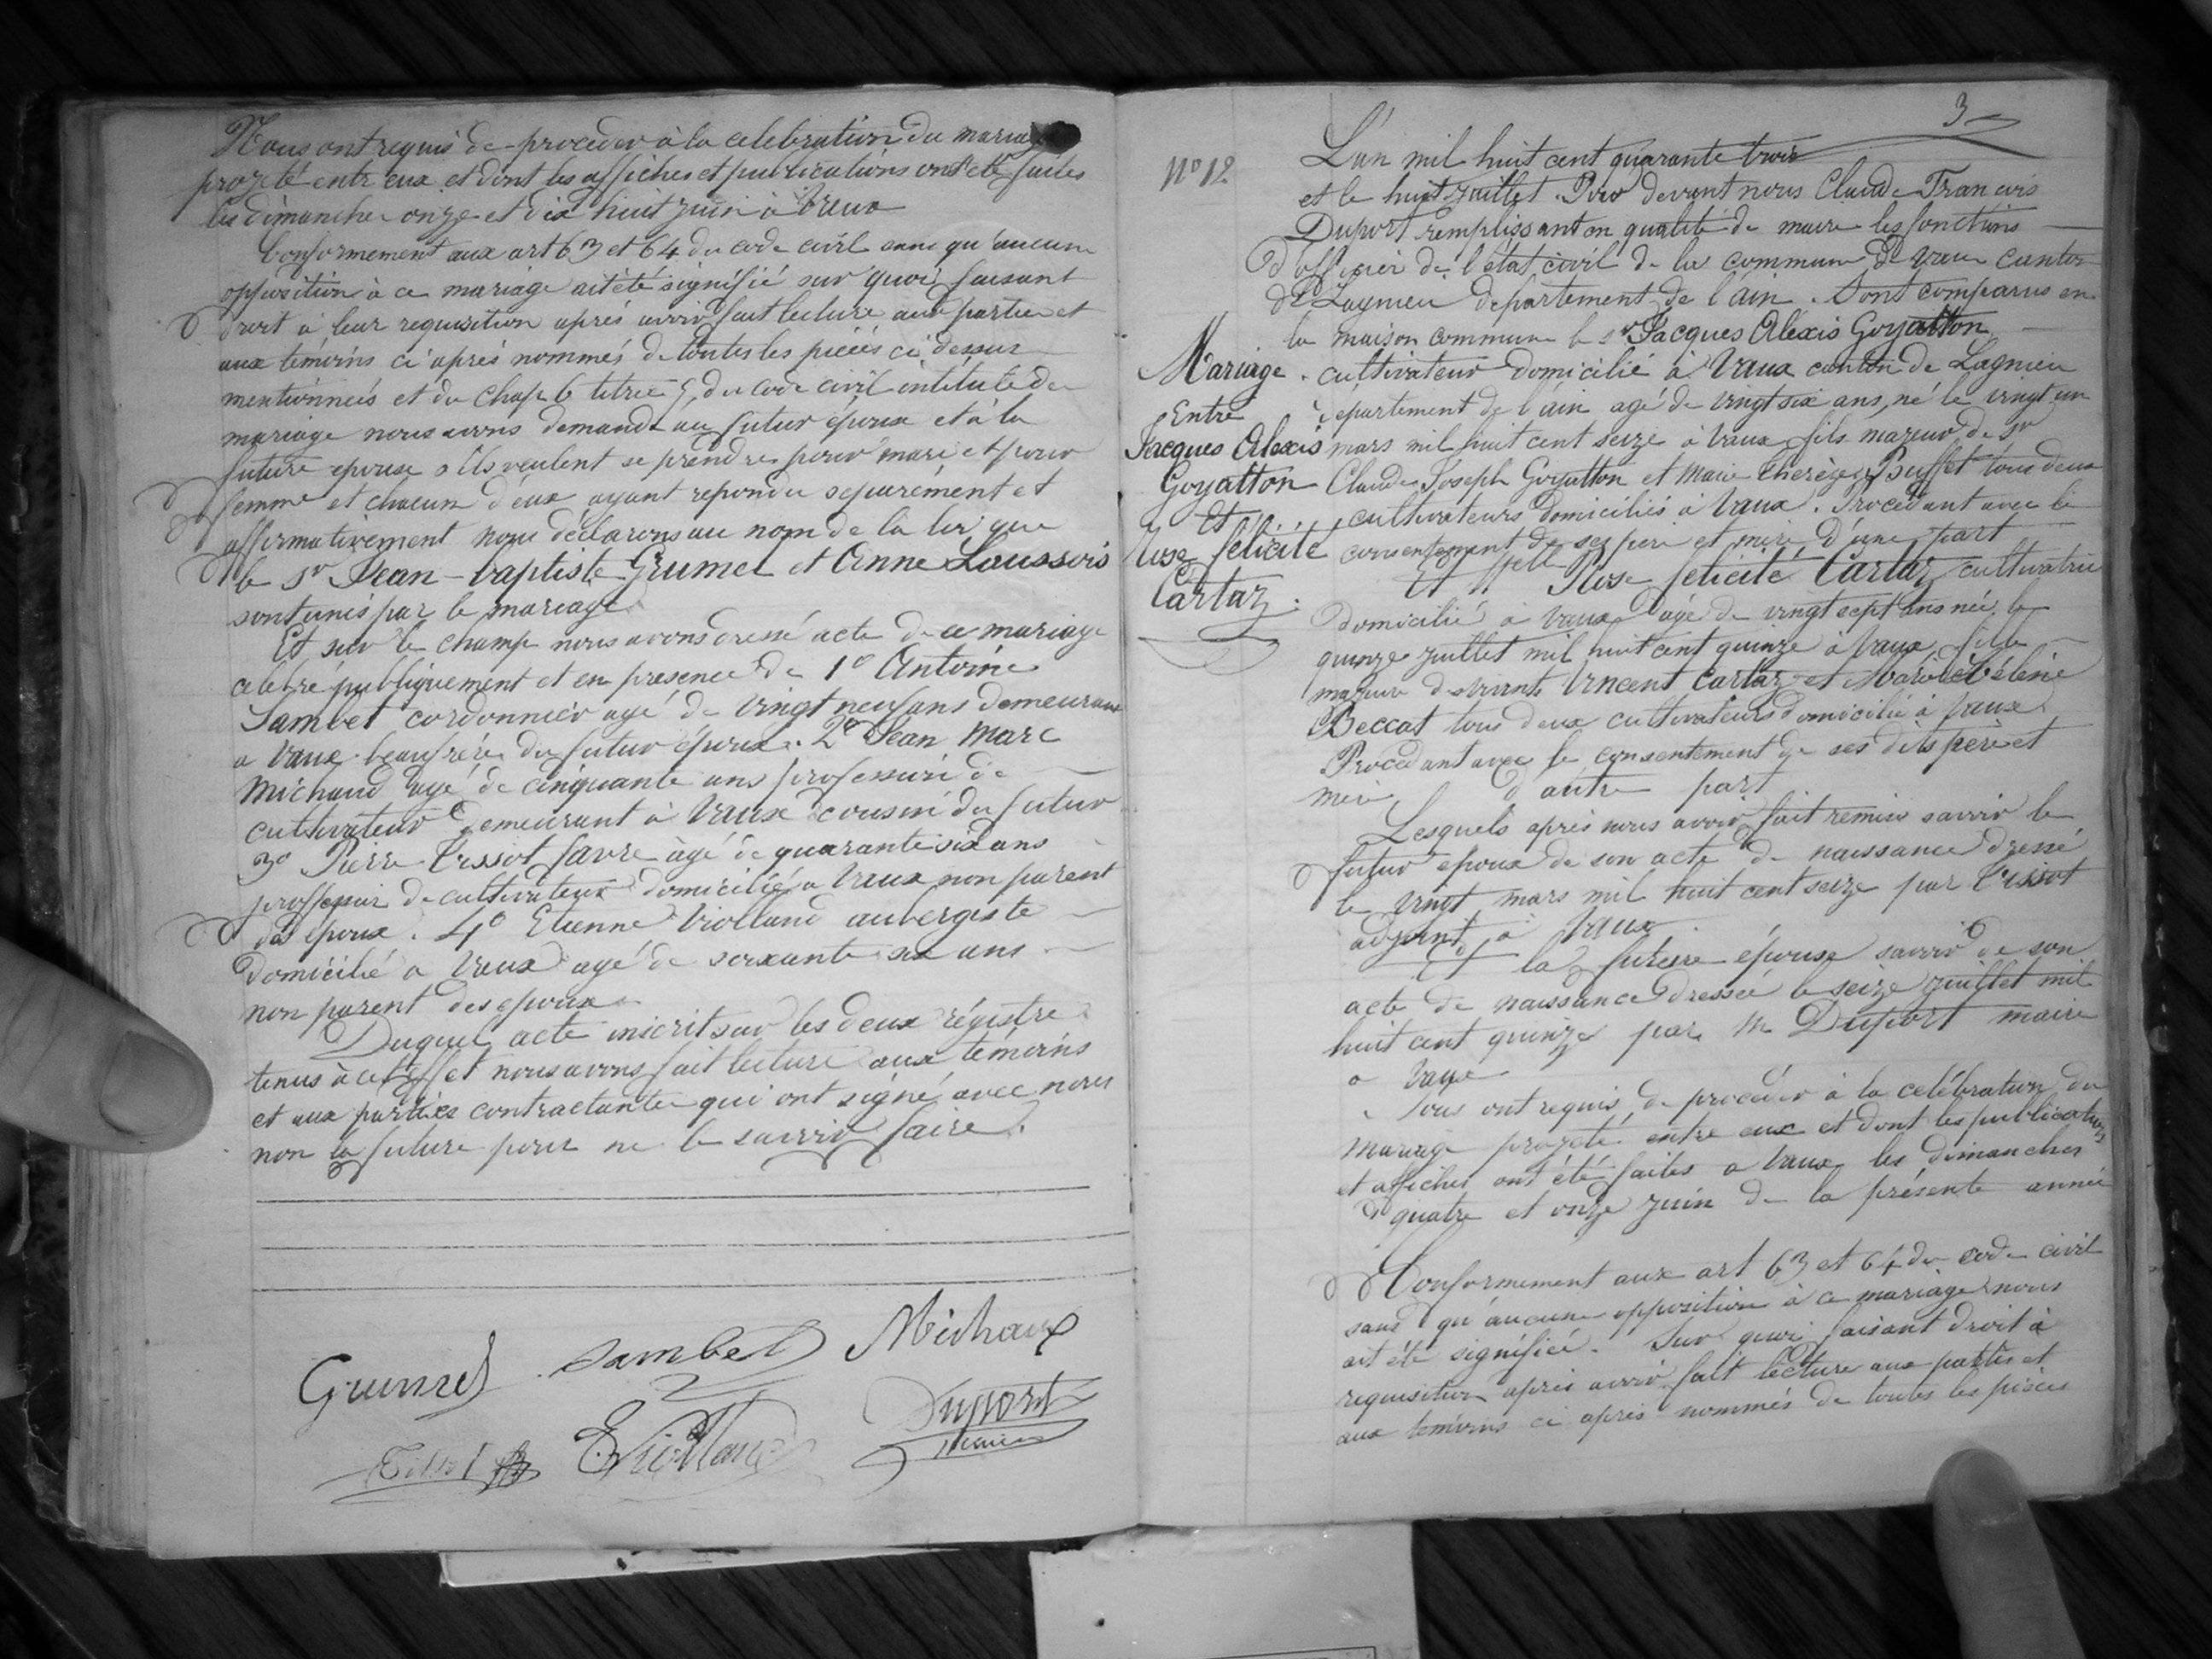 Nous ont requis de proceder à la celebration du mariage
projeté entr'eux et dont les affiches et publications ont été faites
les dimanches onze et dix huit juin à Vaux
Conformement aux art 63 et 64 du code civil sans qu'aucune
opposition à ce mariage ait été signifié sur quoi faisant
droit à leur requisition après avoir fait lecture aux parties et
aux témoins ci après nommés de toutes les pièces ci dessus
mentionnées et du chap 6 titre 5 du code civil intitulé du
mariage nous avons demandé au futur époux et à la
future epouse s'ils veulent se prendre pour mari et pour
femme et chacun d'eux ayant repondu separément et
affirmativement nous déclarons au nom de la loi que
le Sr Jean-baptiste Grumel et Anne Loussois
sont unis par le mariage
Et sur le champ nous avons dressé acte de ce mariage
celebré publiquement et en presence de 1º Antoine
Sambet cordonnier agé de vingt neuf ans demeurant
a Vaux beaufrère du futur époux. 2º Jean Marc
Michaud agé de cinquante ans profession de
cultivateur demeurant à Vaux cousin du futur
3º Pierre Tissot favre agé de quarante six ans
profession de cultivateur domicilié a Vaux non parent
des époux. 4º Etienne Violland aubergiste
domicilié a Vaux agé de soixante six ans
non parent des epoux
Duquel acte inscrit sur les deux régistre
tenus à cet effet nous avons fait lecture aux témoins
et aux parties contractante qui ont signé avec nous
non la future pour ne le savoir faire.
Grumel Sambet Michaux
Tissot E Violland Duport
maire
3
Nº 12
L'an mil huit cent quarante trois
et le huit juillet. Par devant nous Claude Francois
Duport remplissant en qualité de maire les fonctions
d'officier de l'état civil de la commune de Vaux canton
de Lagnieu département de l'ain. Sont comparus en
la maison commune le sr Jacques Alexis Goyatton
Mariage
Entre
Jacques Alexis
Goyatton
Et
Rose felicité
Cartaz.
cultivateur domicilié à Vaux canton de Lagnieu
département de l'ain agé de vingt six ans, né le vingt un
mars mil huit cent seize à Vaux fils majeur de sr
Claude Joseph Goyatton et Marie Therèze Buffet tous deux
cultivateurs domiciliés à Vaux. Procédant avec le
consentement de ses pere et mere d'une part
Et Delle Rose felicité Cartaz cultivatrice
domicilié à Vaux agé de vingt sept ans née le
quinze juillet mil huit cent quinze à Vaux fille
majeure de vivants Vincent Cartaz et Marie Hélène
Beccat tous deux cultivateurs domicilié à Vaux
Procedant avec le consentement de ses dits père et
mère d'autre part
Lesquels après nous avoir fait remise savoir le
futur epoux de son acte de naissance dressé
le vingt mars mil huit cent seize par Tissot
adjoint à Vaux
Et la future épouse savoir de son
acte de naissance dressée le seize juillet mil
huit cent quinze par Mr Duport maire
a Vaux
Nous ont requis de procéder à la celébration du
Mariage projeté entre eux et dont les publications
et affiches ont été faites a Vaux les dimanches
quatre et onze juin de la présente année
Conformement aux art 63 et 64 du code civil
sans qu'aucune opposition à ce mariage nous
ait été signifiée. Sur quoi faisant droit à
requisition après avoir fait lecture aux parties et
aux temoins ci après nommés de toutes les pièces